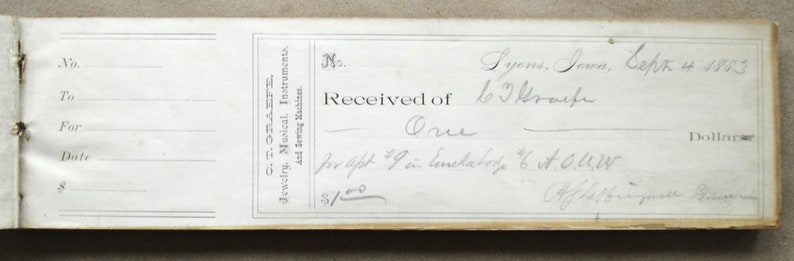 No.
To
For
Date
$
C. T. GRAEFE,
Jewelry, Musical Instruments,
And Sewing Machines.
No. Lyons, Iowa, Sept 4 1883
Received of C T Graefe
One Dollars
for Apt #9 in Eureka Lodge #6 A.O.U.W
$1.00